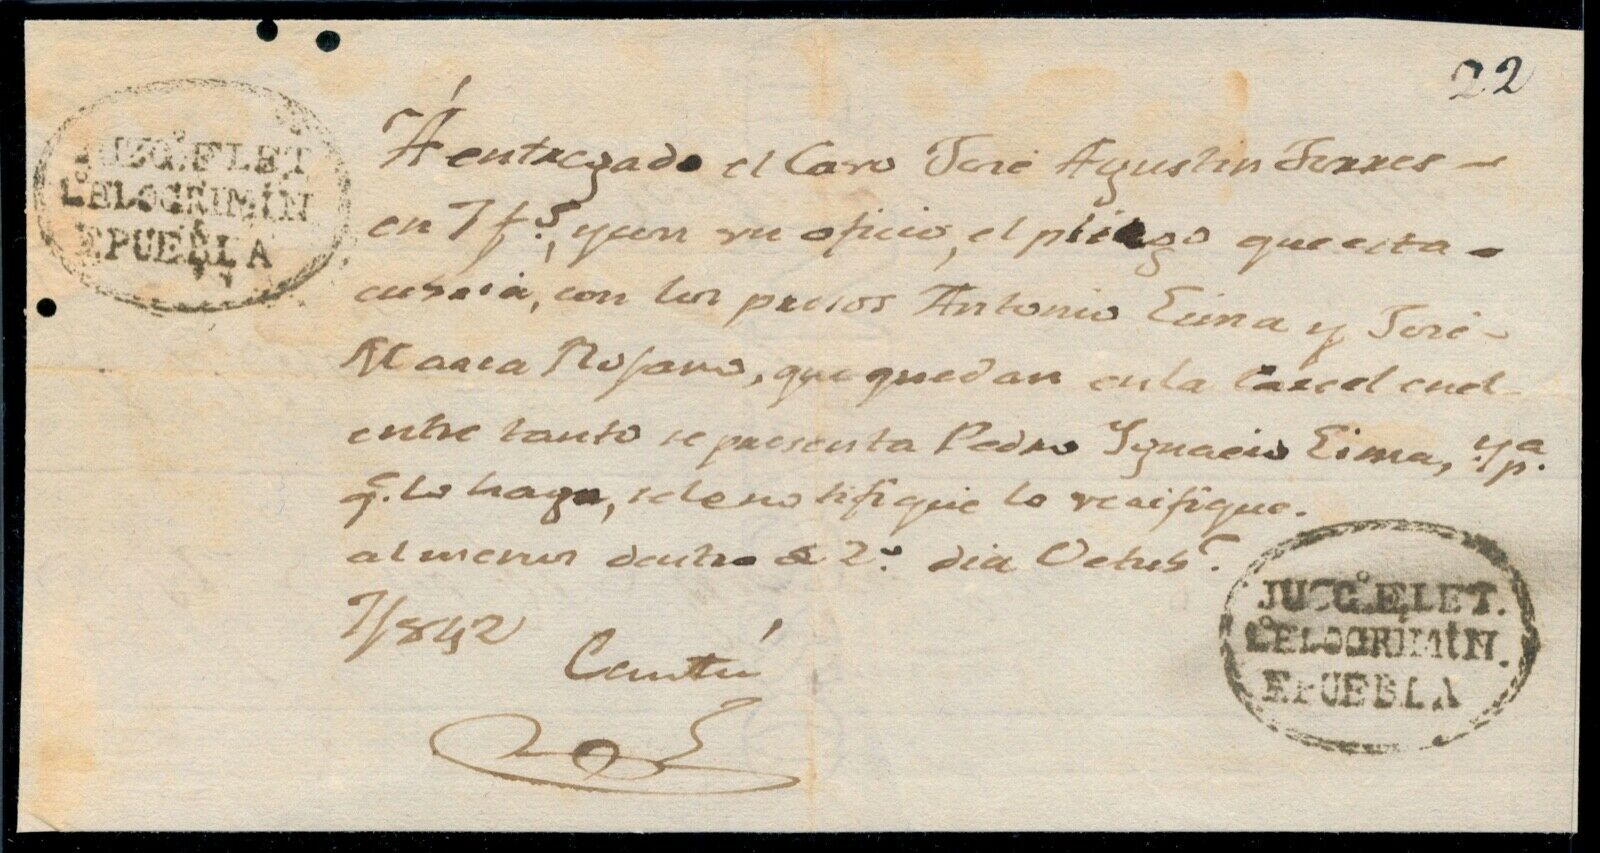 22
JUZG.º E LET
L.º E LO CRIMIN
E PUEBLA
Á entregado el Cavo José Agustin Torres
en 7 f.s, y con su oficio, el pliego que esta
cusaia, con los presos Antonio Lima y José
Maria Rosano, que quedan en la Carcel en el
entre tanto se presenta Pedro Ygnacio Lima, y p.a
q.e lo haga, se le notifique lo verifique.
al menos dentro de 2.º dia Octub.e
7/842
Cantú
JUZG.º E LET.
L.º E LO CRIMIN.
E PUEBLA